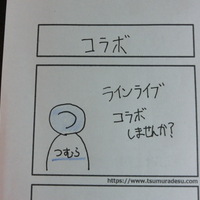 コラボ
ラインライブ
コラボ
しませんか?
つ
つむら
https://www.tsumuradesu.com